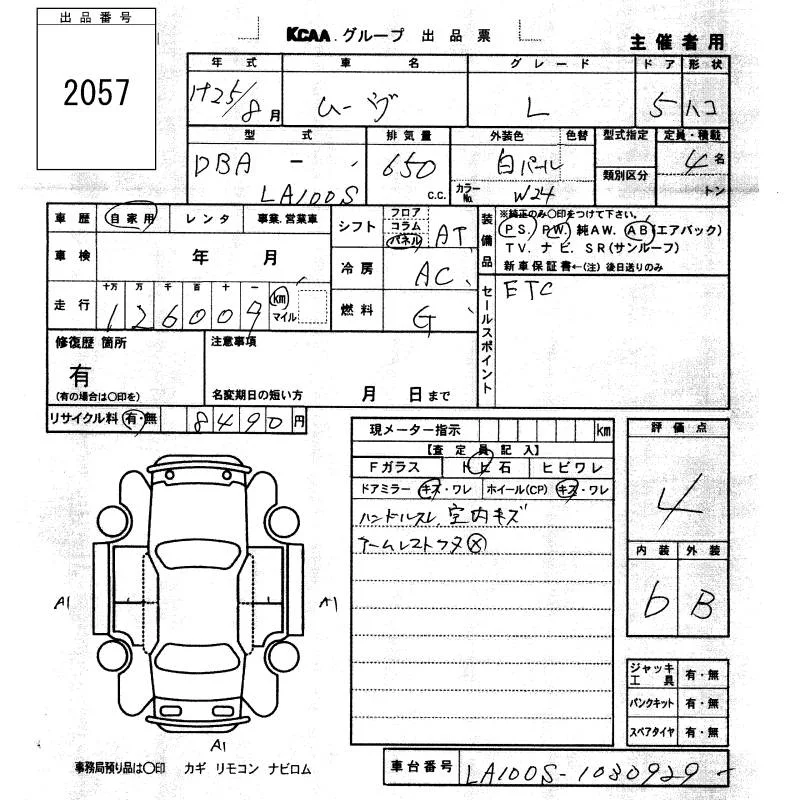 出品番号
2057
KCAA グループ 出品票
主催者用
年式 車名 グレード ドア 形状
H25/8月 ムーヴ L 5 ハコ
型式 排気量 外装色 色替 型式指定 定員・積載
DBA - 650 白パール 4名
LA100S C.C. カラーNo. W24 類別区分 トン
車歴 自家用 レンタ 事業.営業車
車検 年 月
走行 十万 万 千 百 十 一
126009 km マイル
シフト フロア コラム パネル AT
冷房 AC
燃料 G
装備品 ※純正のみ〇印をつけて下さい。
PS. PW. 純AW. AB(エアバック)
TV. ナビ. SR(サンルーフ)
新車保証書←(注) 後日送りのみ
セールスポイント ETC
修復歴 箇所
有
(有の場合は〇印を)
注意事項
名変期日の短い方 月 日まで
リサイクル料 有・無 8490円
現メーター指示 km
【査定員記入】
Fガラス トビ石 ヒビワレ
ドアミラー キズ・ワレ ホイール(CP) キズ・ワレ
ハンドルスレ、室内キズ
アームレストフタ×
評価点
4
内装 外装
b B
A1 A1
A1
ジャッキ工具 有・無
パンクキット 有・無
スペアタイヤ 有・無
事務局預り品は〇印 カギ リモコン ナビロム
車台番号 LA100S-1030929